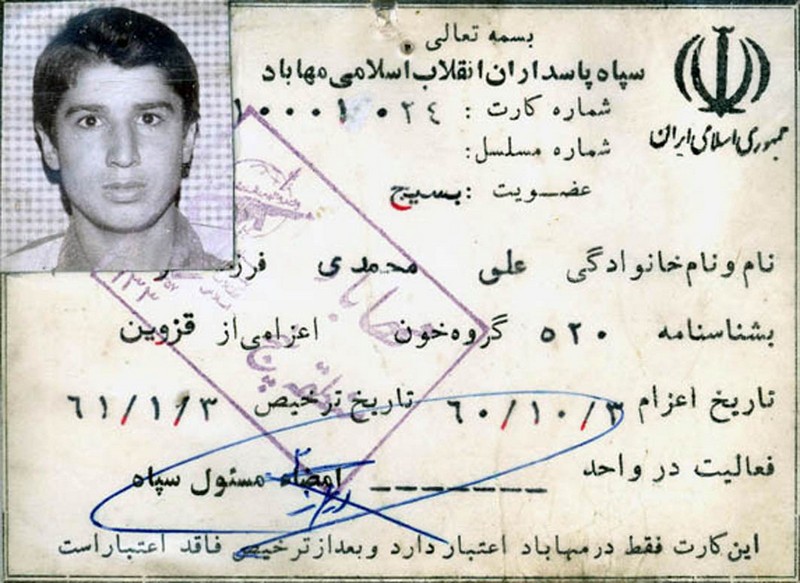 بسمه تعالی
سپاه پاسداران انقلاب اسلامی مهاباد
جمهوری اسلامی ایران
شماره کارت : ۱۰۰۰۱۰۲۴
شماره مسلسل:
عضویت : بسیج
نام و نام خانوادگی علی محمدی
بشناسنامه ۵۲۰ گروه خون اعزامی از قزوین
تاریخ اعزام ۶۰/۱۰/۳ تاریخ ترخیص ۶۱/۱/۳
فعالیت در واحد _ _ _ _ _ _ _ امضاء مسئول سپاه
این کارت فقط در مهاباد اعتبار دارد و بعد از ترخیص فاقد اعتبار است